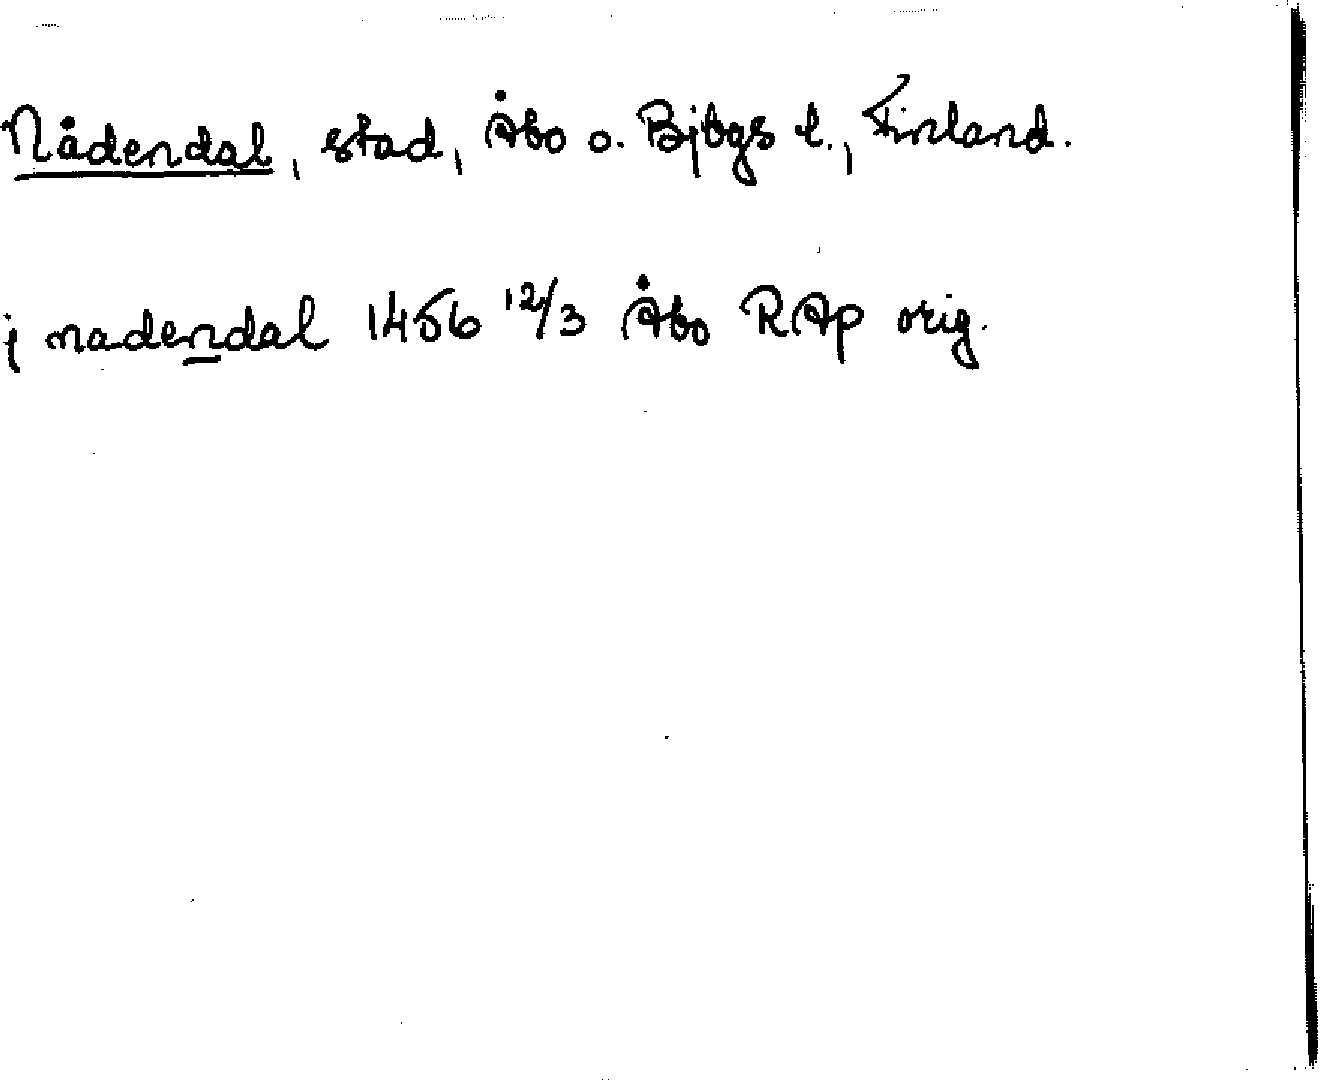 Nådendal, stad, Åbo o. Bjbgs l., Finland.
j nadendal 1456 12/3 Åbo RAp orig.